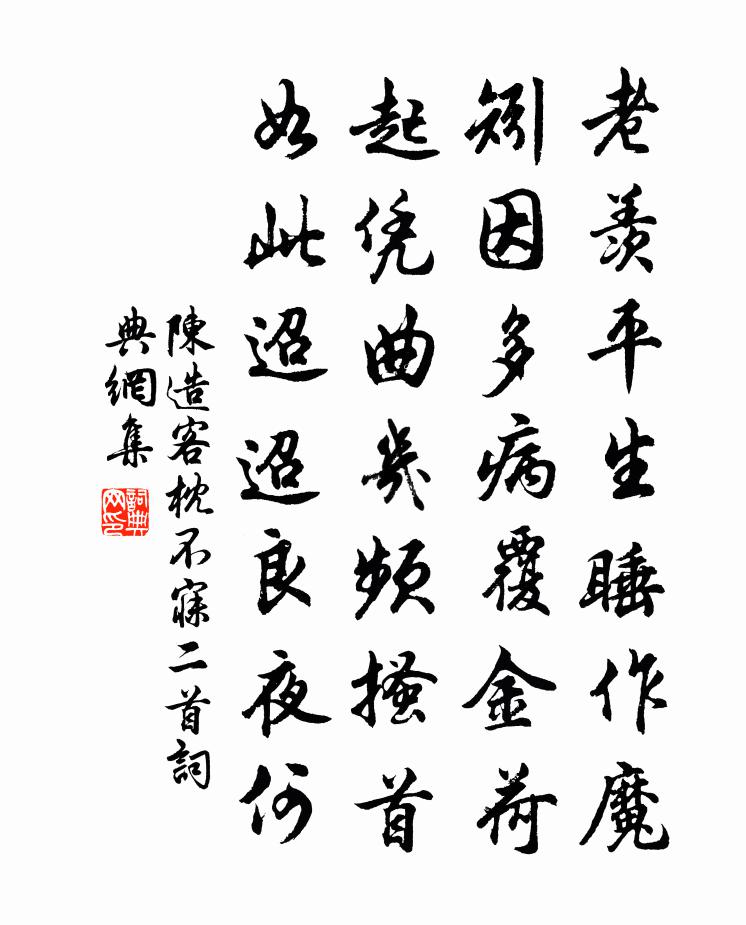 老羨平生睡作魔
矧因多病覆金荷
起凭曲几頻搔首
如此迢迢良夜何
陳造客枕不寐二首詞
典網集
詞典網印